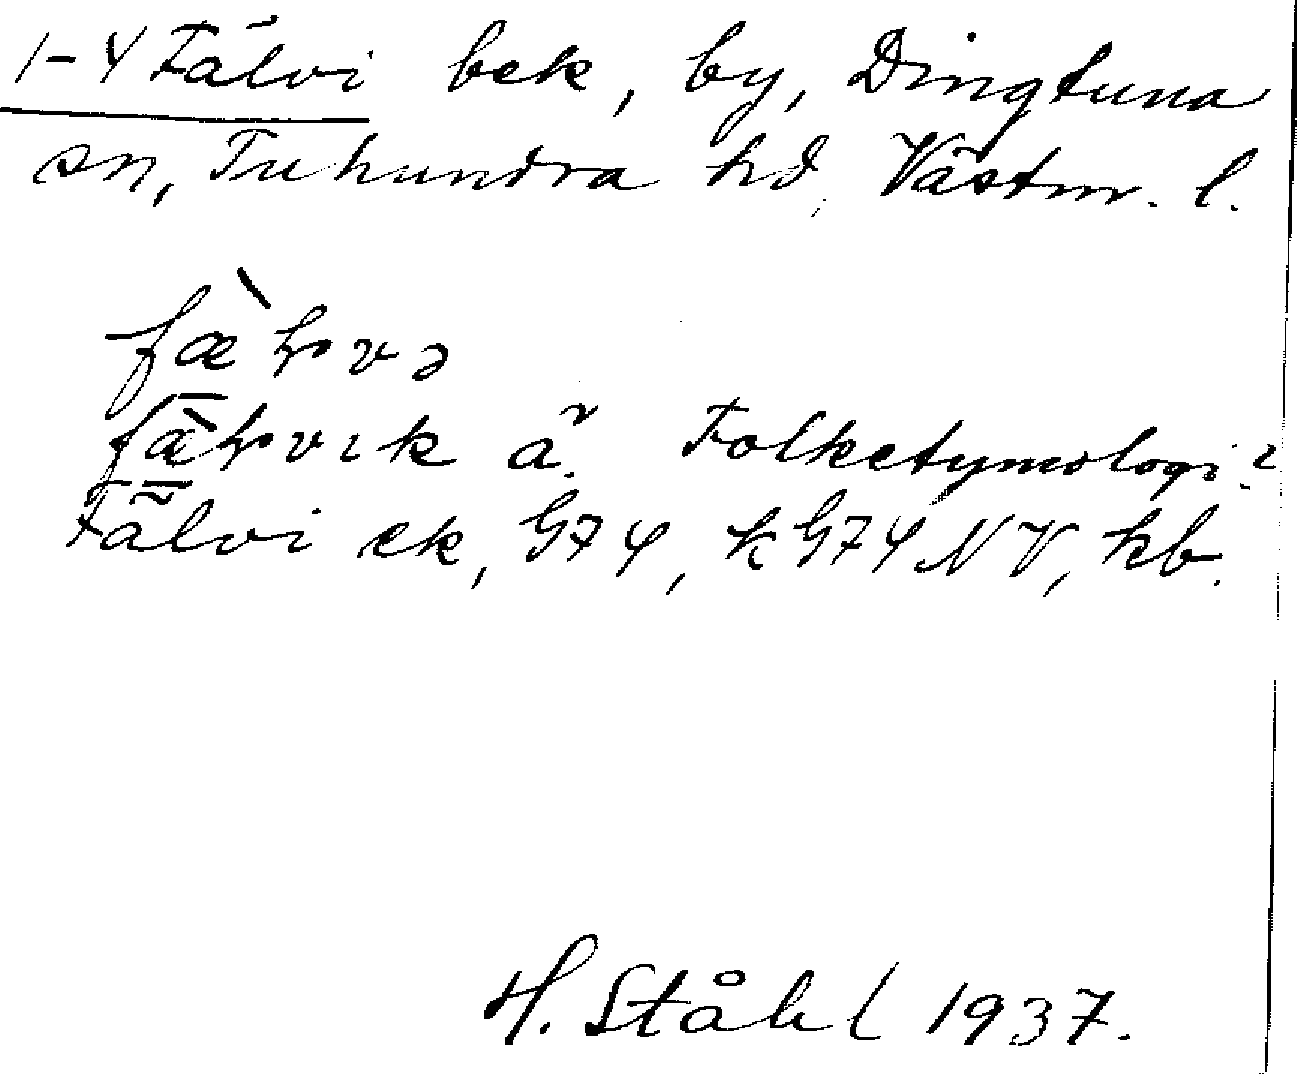 1-4 Fälvi bek, by, Dingtuna
sn, Tuhundra hd, Västm. l.
Folketymologi?
Fälvi ek, G74, k G74 NV, kb.
H. Ståhl 1937.